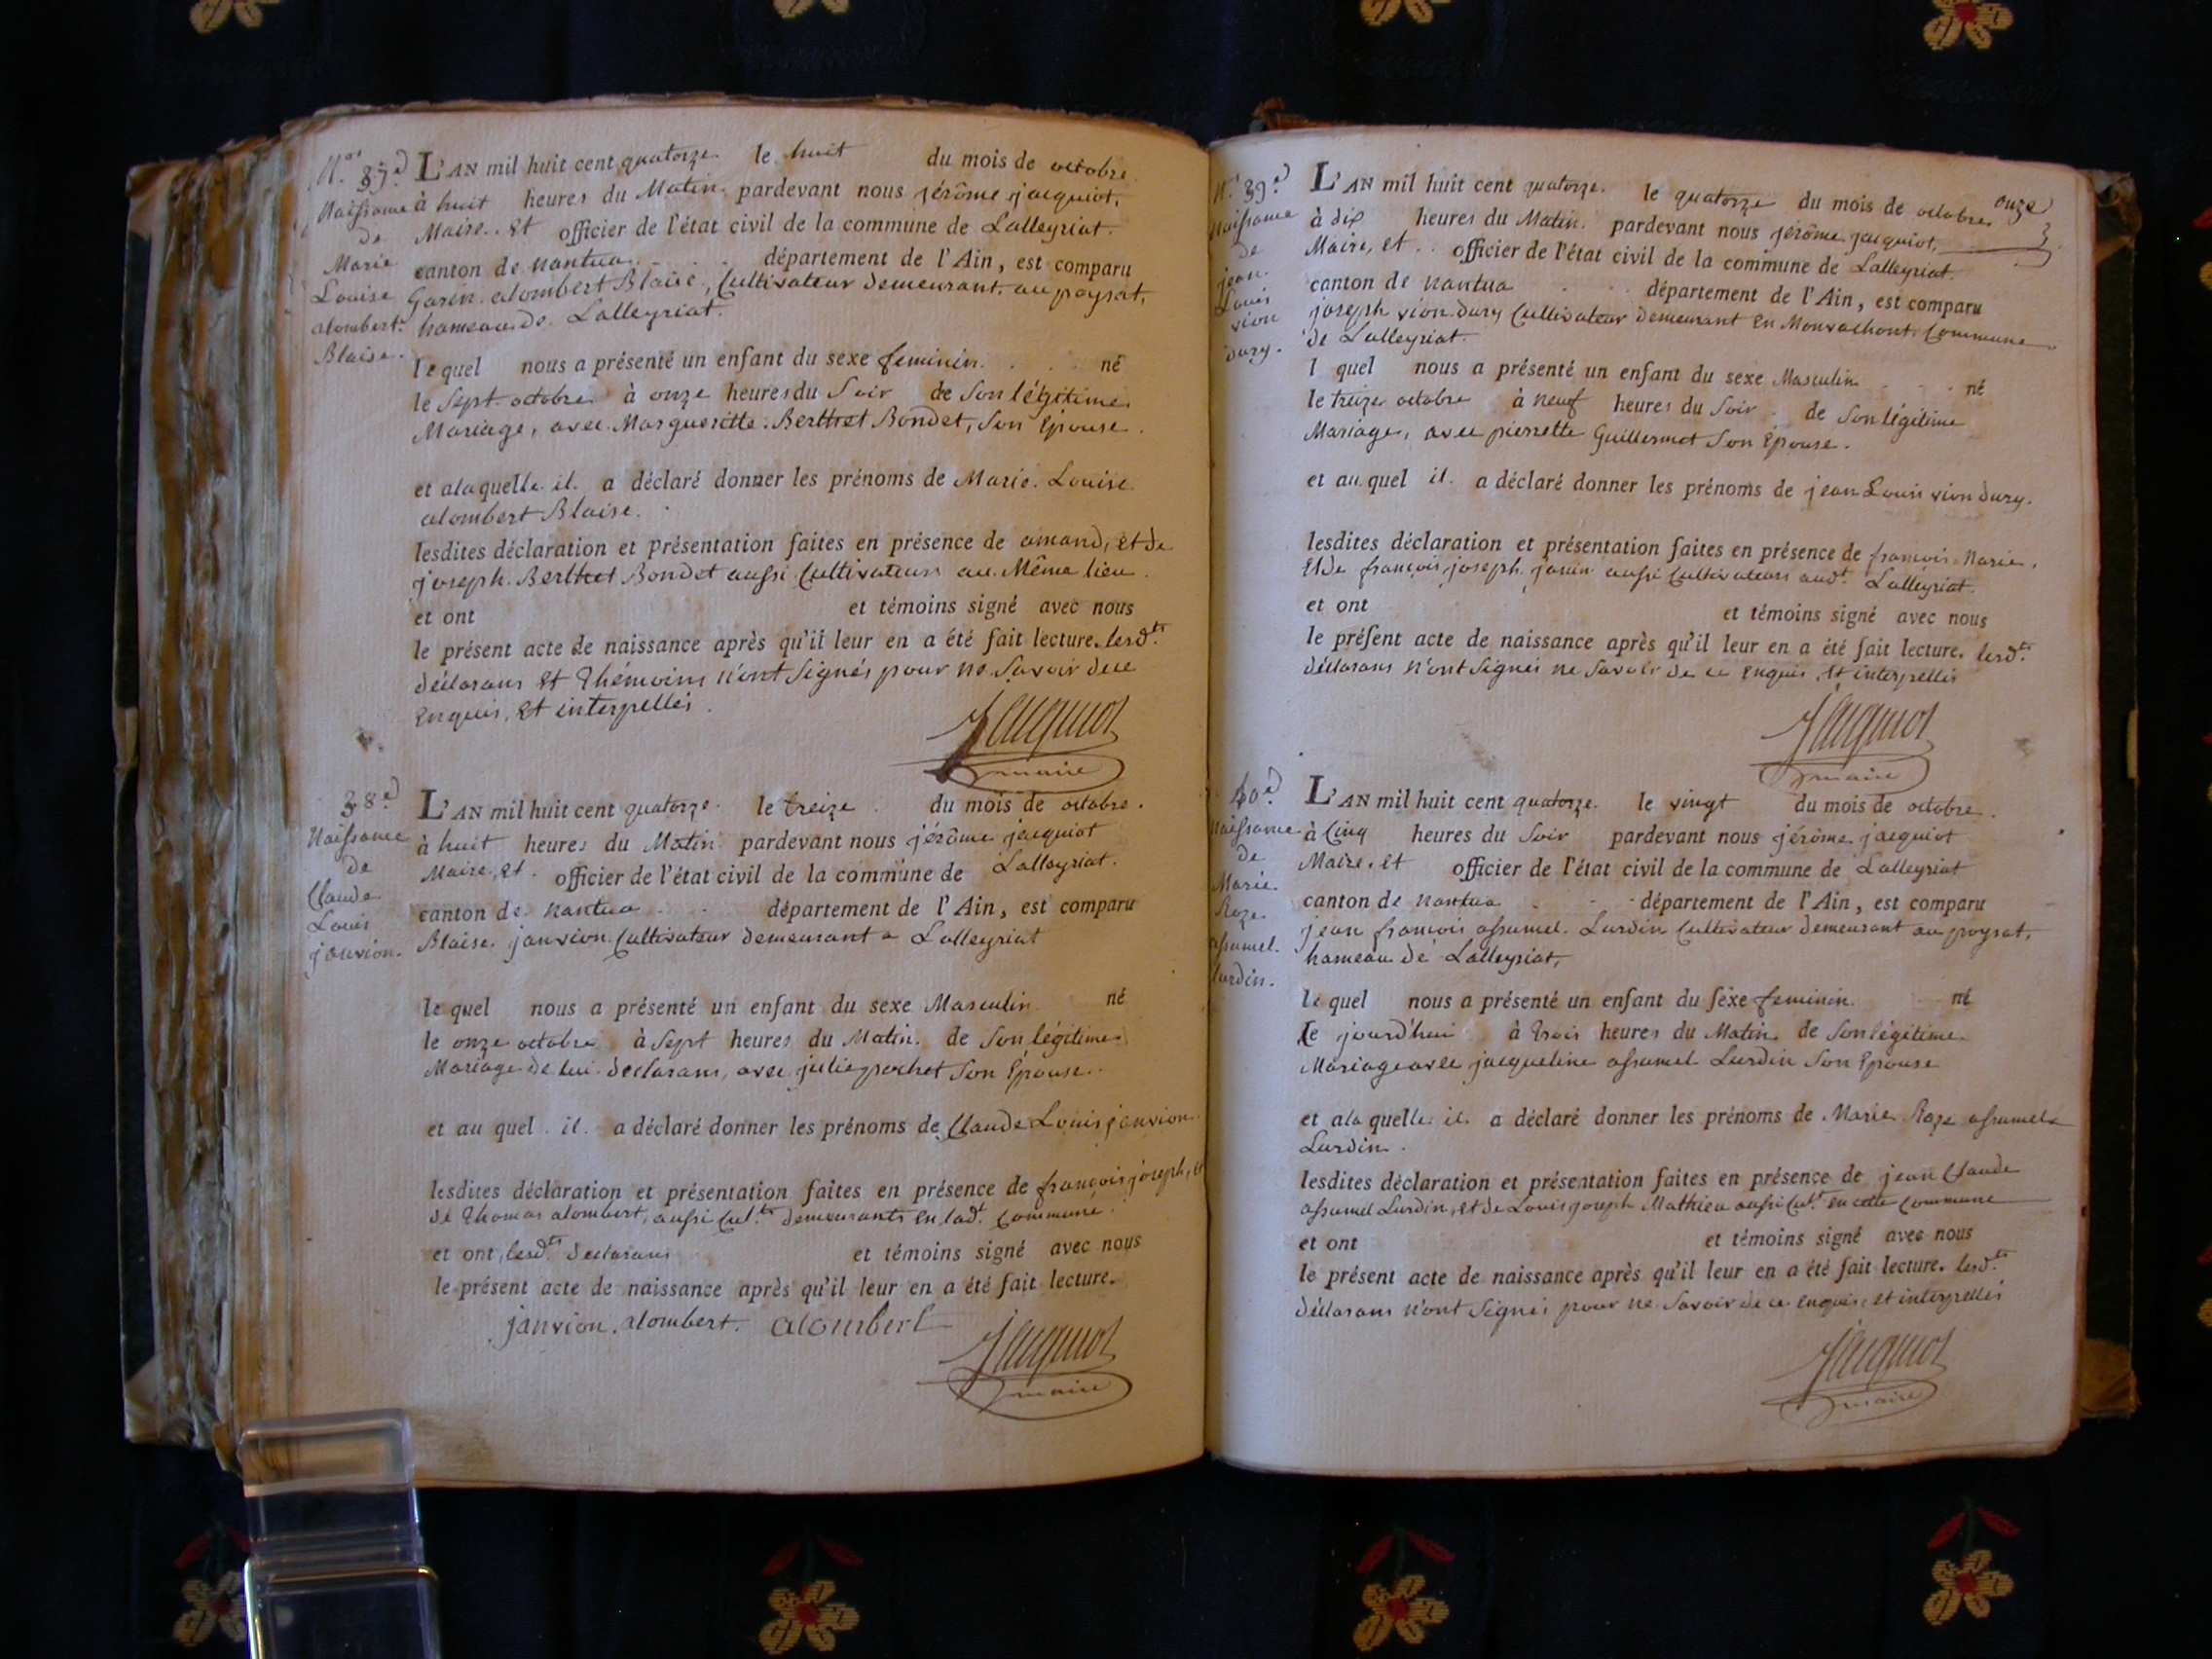 N.° 37.e
Naissance
de
Marie
Louise
alombert
Blaise.
L'AN mil huit cent quatorze le huit du mois de octobre
à huit heures du Matin pardevant nous jérôme jacquiot,
Maire. Et officier de l'état civil de la commune de Lalleyriat.
canton de nantua département de l'Ain, est comparu
alombert Blaise, Cultivateur demeurant au poysat,
hameau de Lalleyriat.
lequel nous a présenté un enfant du sexe feminin. né
le Sept octobre à onze heures du Soir de Son légitime
Mariage, avec Margueritte Berthet Bondet, Son Epouse.
et a laquelle il a déclaré donner les prénoms de Marie Louise
alombert Blaise.
lesdites déclaration et présentation faites en présence de amand, et de
joseph Berthet Bondet aussi Cultivateurs au Même lieu.
et ont et témoins signé avec nous
le présent acte de naissance après qu'il leur en a été fait lecture. lesd.ts
déclarans Et Thémoins n'ont Signés pour ne Savoir de ce
Enquis, Et interpellés.
Jacquiot
maire
38.e
Naissance
de
Claude
Louis
janvion.
L'AN mil huit cent quatorze le treize du mois de octobre.
à huit heures du Matin pardevant nous jérôme jacquiot
Maire, et officier de l'état civil de la commune de Lalleyriat.
canton de nantua département de l'Ain, est comparu
Blaise janvion Cultivateur demeurant a Lalleyriat
lequel nous a présenté un enfant du sexe Masculin né
le onze octobre à Sept heures du Matin. de Son légitime
Mariage de lui declarans, avec julie pochet Son Epouse.
et au quel il a déclaré donner les prénoms de Claude Louis janvion
lesdites déclaration et présentation faites en présence de françois joseph, et
de Thomas alombert, aussi Cult.rs demeurants en lad.t Commune.
et ont, lesd.ts declarans et témoins signé avec nous
le présent acte de naissance après qu'il leur en a été fait lecture.
janvion. alombert. alombert
Jacquiot
maire
onze
N.° 39.e
Naissance
de
jean
Louis
vion
dury.
L'AN mil huit cent quatorze. le quatorze du mois de octobre
à dix heures du Matin. pardevant nous jérôme jacquiot,
Maire, et officier de l'état civil de la commune de Lalleyriat.
canton de nantua département de l'Ain, est comparu
joseph vion dury Cultivateur demeurant En Monvachont, Commune
de Lalleyriat.
l quel nous a présenté un enfant du sexe Masculin né
le treize octobre à neuf heures du Soir de Son légitime
Mariage, avec pierrette Guillermot Son Epouse.
et au quel il a déclaré donner les prénoms de jean Louis vion dury.
lesdites déclaration et présentation faites en présence de françois Marie,
Et de françois joseph janin aussi Cultivateurs aud.t Lalleyriat.
et ont et témoins signé avec nous
le présent acte de naissance après qu'il leur en a été fait lecture. lesd.ts
déclarans n'ont Signés ne Savoir de ce Enquis, Et interpellés
Jacquiot
maire
40.e
Naissance
de
Marie
Roze
assumel
lurdin.
L'AN mil huit cent quatorze. le vingt du mois de octobre.
à Cinq heures du Soir pardevant nous jérôme jacquiot
Maire. et officier de l'état civil de la commune de Lalleyriat
canton de nantua département de l'Ain, est comparu
jean françois assumel Lurdin Cultivateur demeurant au poysat,
hameau de Lalleyriat,
lequel nous a présenté un enfant du sexe feminin. né
Le jourd'hui à trois heures du Matin de Son légitime
Mariage avec jacqueline assumel Lurdin Son Epouse
et a la quelle il a déclaré donner les prénoms de Marie Roze assumel
Lurdin.
lesdites déclaration et présentation faites en présence de jean Claude
assumel Lurdin, et de Louis joseph Mathieu aussi Cult. en cette Commune
et ont et témoins signé avec nous
le présent acte de naissance après qu'il leur en a été fait lecture. lesd.ts
déclarans n'ont Signés pour ne Savoir de ce enquis, et interpellés
Jacquiot
maire